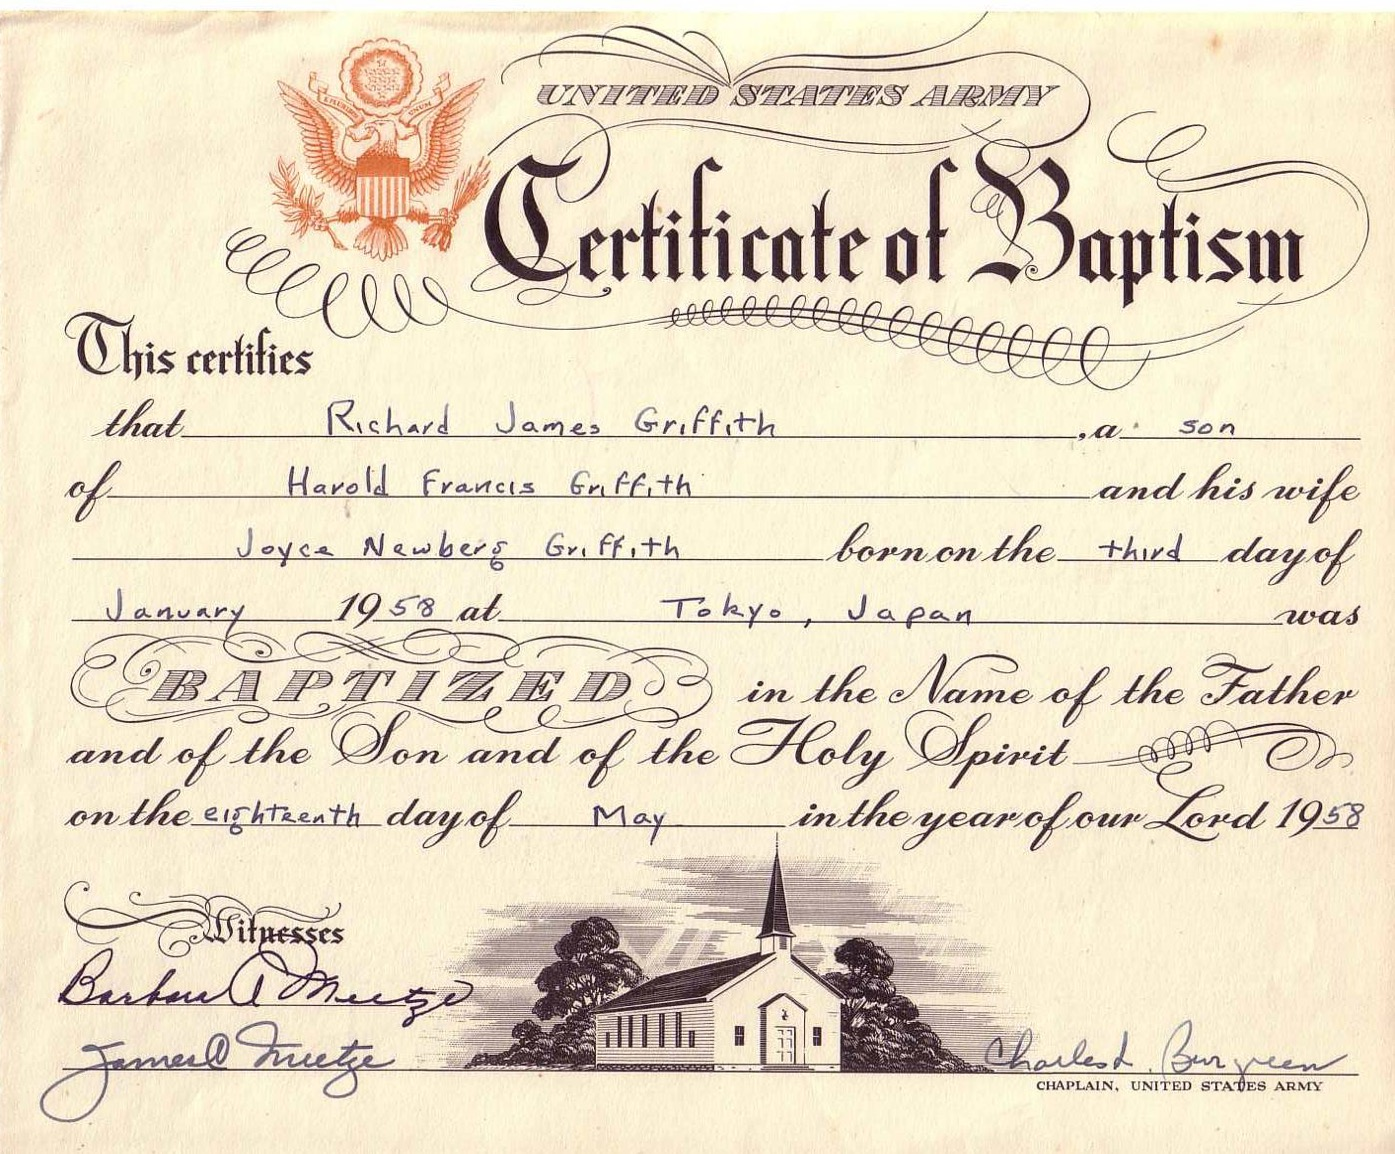 UNITED STATES ARMY
Certificate of Baptism
This certifies
that Richard James Griffith , a son
of Harold Francis Griffith and his wife
Joyce Newberg Griffith born on the third day of
January 1958 at Tokyo, Japan was
BAPTIZED in the Name of the Father
and of the Son and of the Holy Spirit
on the eighteenth day of May in the year of our Lord 1958
Witnesses
Barbara A Meetze
James C Meetze
Charles L. Burgreen
CHAPLAIN, UNITED STATES ARMY